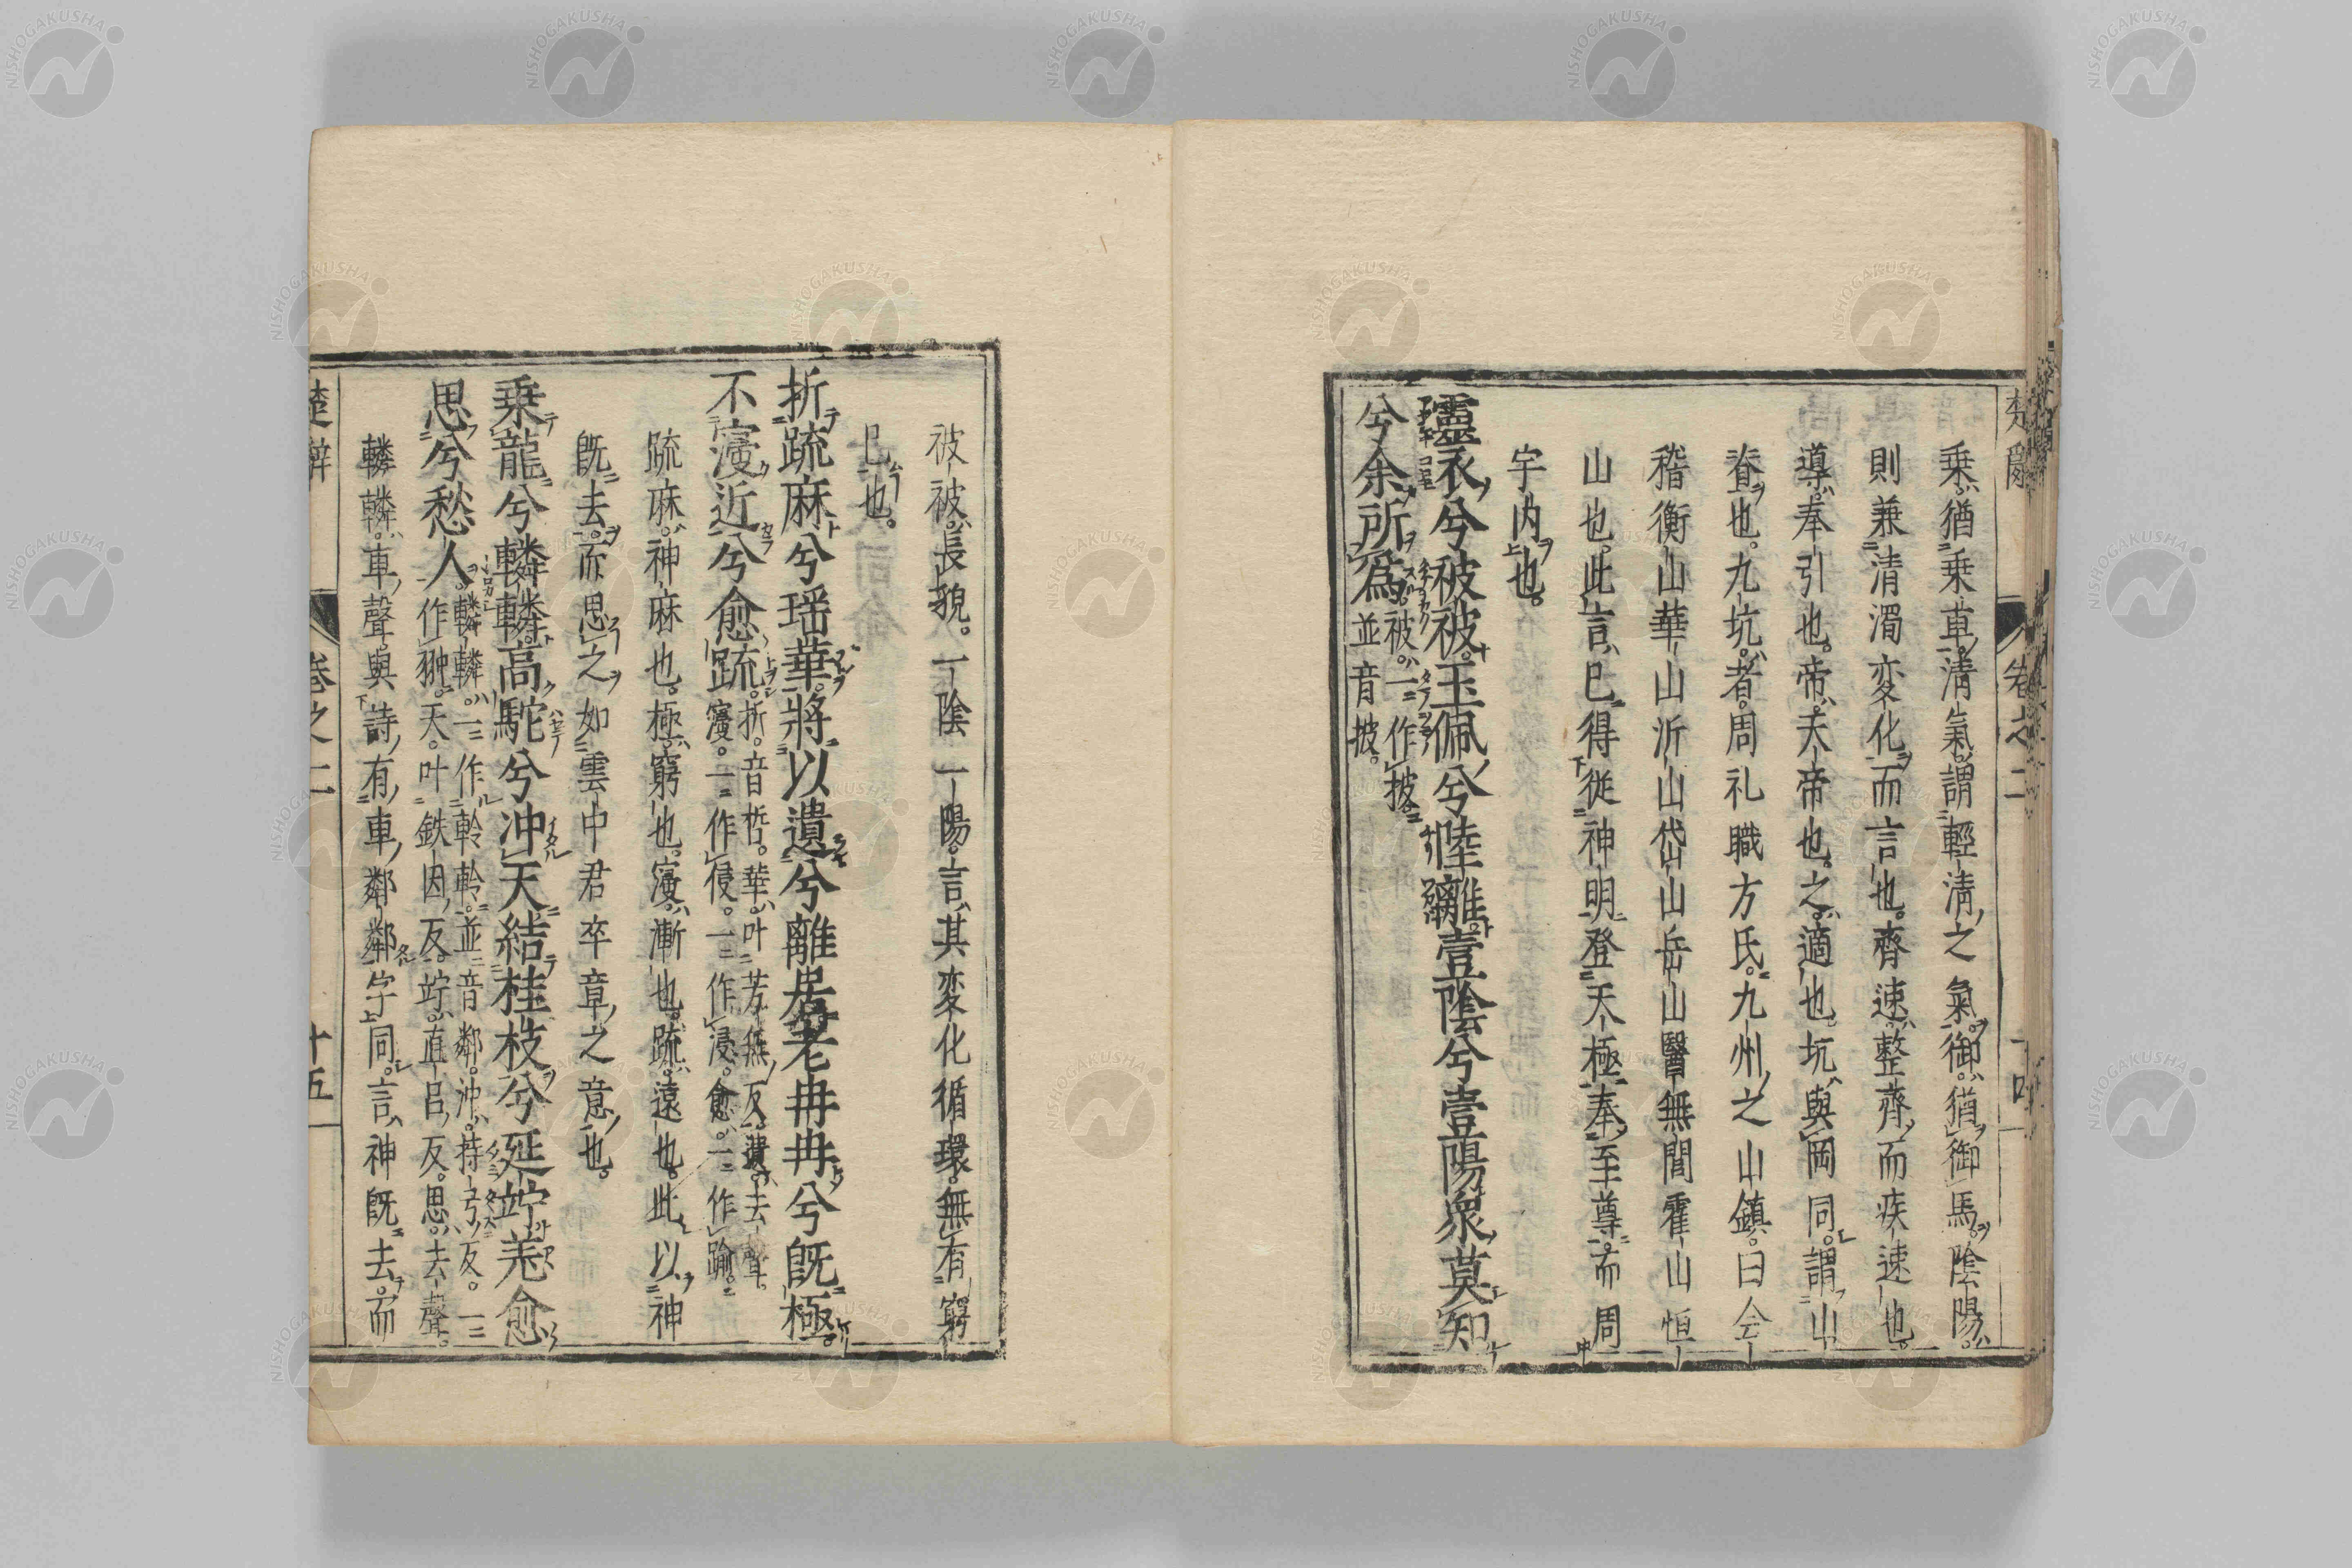 乗猶乗車清氣謂輕清之氣御猶御馬陰陽
則兼清濁変化而言也齊速整齊而疾速也
導奉引也帝天帝也之適也坑與岡同謂山
脊也九坑者周礼職方氏九州之山鎮曰会
稽衡山華山沂山岱山岳山醫無閭霍山恒
山也此言已得從神明登天極奉至尊而周
宇内也
靈衣兮被被玉佩兮陸離壹陰兮壹陽衆莫知
兮余所爲被一作披
並音披
楚辭 卷之二 十四
被被長貌一陰一陽言其変化循環無有窮
已也
折疏麻兮瑶華將以遺兮離居老冉冉兮既極
不寖近兮愈疏折音哲華叶芳無反遺去聲
寖一作侵一作浸愈一作踰
疏麻神麻也極窮也寖漸也疏遠也此以神
既去而思之如雲中君卒章之意也
乗龍兮轔轔高駝兮沖天結桂枝兮延竚羌愈
思兮愁人轔轔一作軨軨並音鄰沖持弓反一
作翀天叶鉄因反竚直呂反思去聲
轔轔車聲與詩有車鄰鄰字同言神既去而
楚辭 卷之二 十五
NISHOGAKUSHA